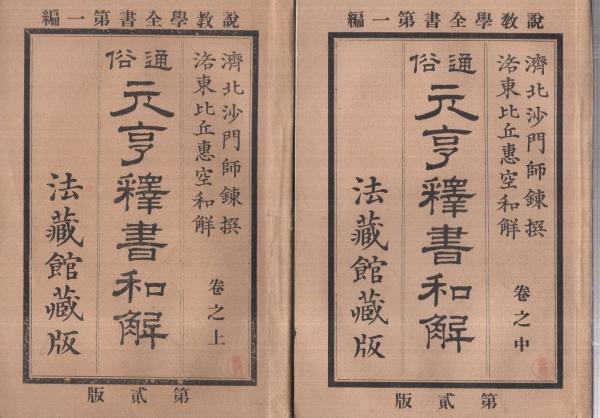 說教學全書第一編
濟北沙門師錬撰
洛東比丘惠空和解
通俗
元亨釋書和解
卷之上
法藏館藏版
第貳版
說教學全書第一編
濟北沙門師錬撰
洛東比丘惠空和解
通俗
元亨釋書和解
卷之中
法藏館藏版
第貳版